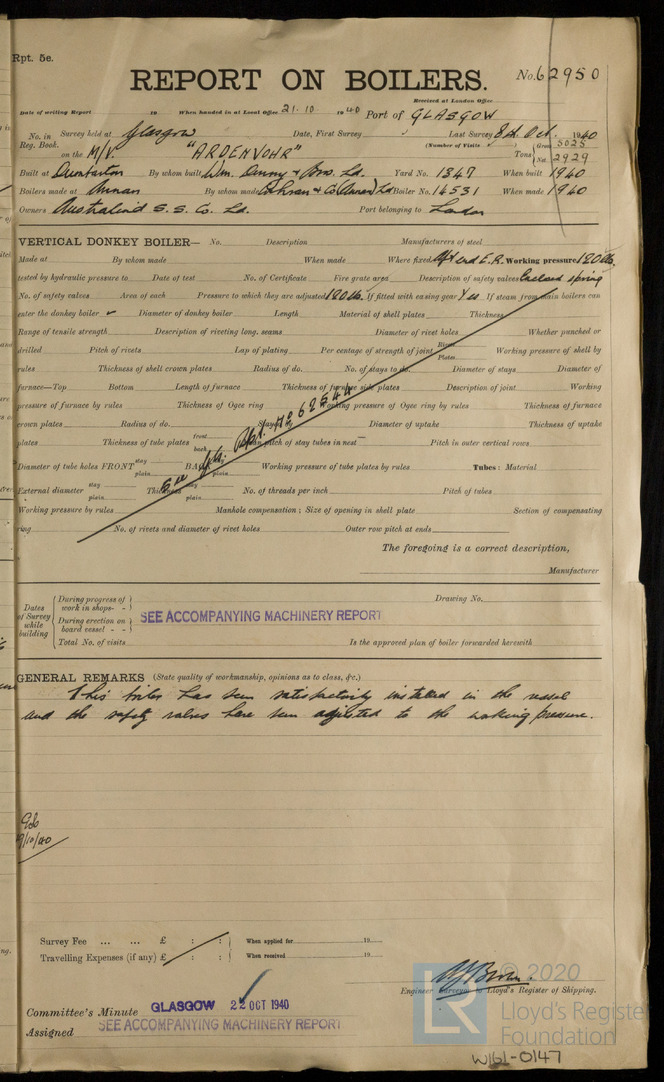 Rpt. 5e.
REPORT ON BOILERS.
No. 62950
Received at London Office
Date of writing Report 19 When handed in at Local Office 21.10 1940 Port of GLASGOW
No. in Reg. Book. Survey held at Glasgow Date, First Survey Last Survey 8th Oct. 1940
(Number of Visits )
on the M/V. "ARDENVOHR" Tons { Gross 5025 Net 2929
Built at Dumbarton By whom built Wm. Denny & Bros. Ld. Yard No. 1347 When built 1940
Boilers made at Annan By whom made Cochran & Co (Annan) Ld Boiler No. 14531 When made 1940
Owners Australind S. S. Co. Ld. Port belonging to London
VERTICAL DONKEY BOILER— No. Description Manufacturers of steel
Made at By whom made When made Where fixed Aft end E.R. Working pressure 120 lb.
tested by hydraulic pressure to Date of test No. of Certificate Fire grate area Description of safety valves spring
No. of safety valves Area of each Pressure to which they are adjusted 120 lb. If fitted with easing gear Yes If steam from main boilers can
enter the donkey boiler Diameter of donkey boiler Length Material of shell plates Thickness
Range of tensile strength Description of riveting long. seams Diameter of rivet holes Whether punched or
drilled Pitch of rivets Lap of plating Per centage of strength of joint Rivets Plates Working pressure of shell by
rules Thickness of shell crown plates Radius of do. No. of stays to do. Diameter of stays Diameter of
furnace—Top Bottom Length of furnace Thickness of furnace side plates Description of joint Working
pressure of furnace by rules Thickness of Ogee ring Working pressure of Ogee ring by rules Thickness of furnace
crown plates Radius of do. Stayed by Diameter of uptake Thickness of uptake
plates Thickness of tube plates front back Mean pitch of stay tubes in nest Pitch in outer vertical rows
Diameter of tube holes FRONT stay plain BACK stay plain Working pressure of tube plates by rules Tubes: Material
External diameter stay plain Thickness stay plain No. of threads per inch Pitch of tubes
Working pressure by rules Manhole compensation; Size of opening in shell plate Section of compensating
ring No. of rivets and diameter of rivet holes Outer row pitch at ends
See Gls. Rpt. No 62544
The foregoing is a correct description,
Manufacturer
Dates of Survey while building
During progress of work in shops - -
During erection on board vessel - -
Total No. of visits
SEE ACCOMPANYING MACHINERY REPORT
Drawing No.
Is the approved plan of boiler forwarded herewith
GENERAL REMARKS (State quality of workmanship, opinions as to class, &c.)
This boiler has been satisfactorily installed in the vessel
and the safety valves have been adjusted to the working pressure.
9/10/40
Survey Fee ... ... £ : : When applied for 19
Travelling Expenses (if any) £ : : When received 19
Engineer Surveyor to Lloyd's Register of Shipping.
Committee's Minute GLASGOW 22 OCT 1940
Assigned SEE ACCOMPANYING MACHINERY REPORT
LR © 2020
Lloyd's Register
Foundation
W161-0147